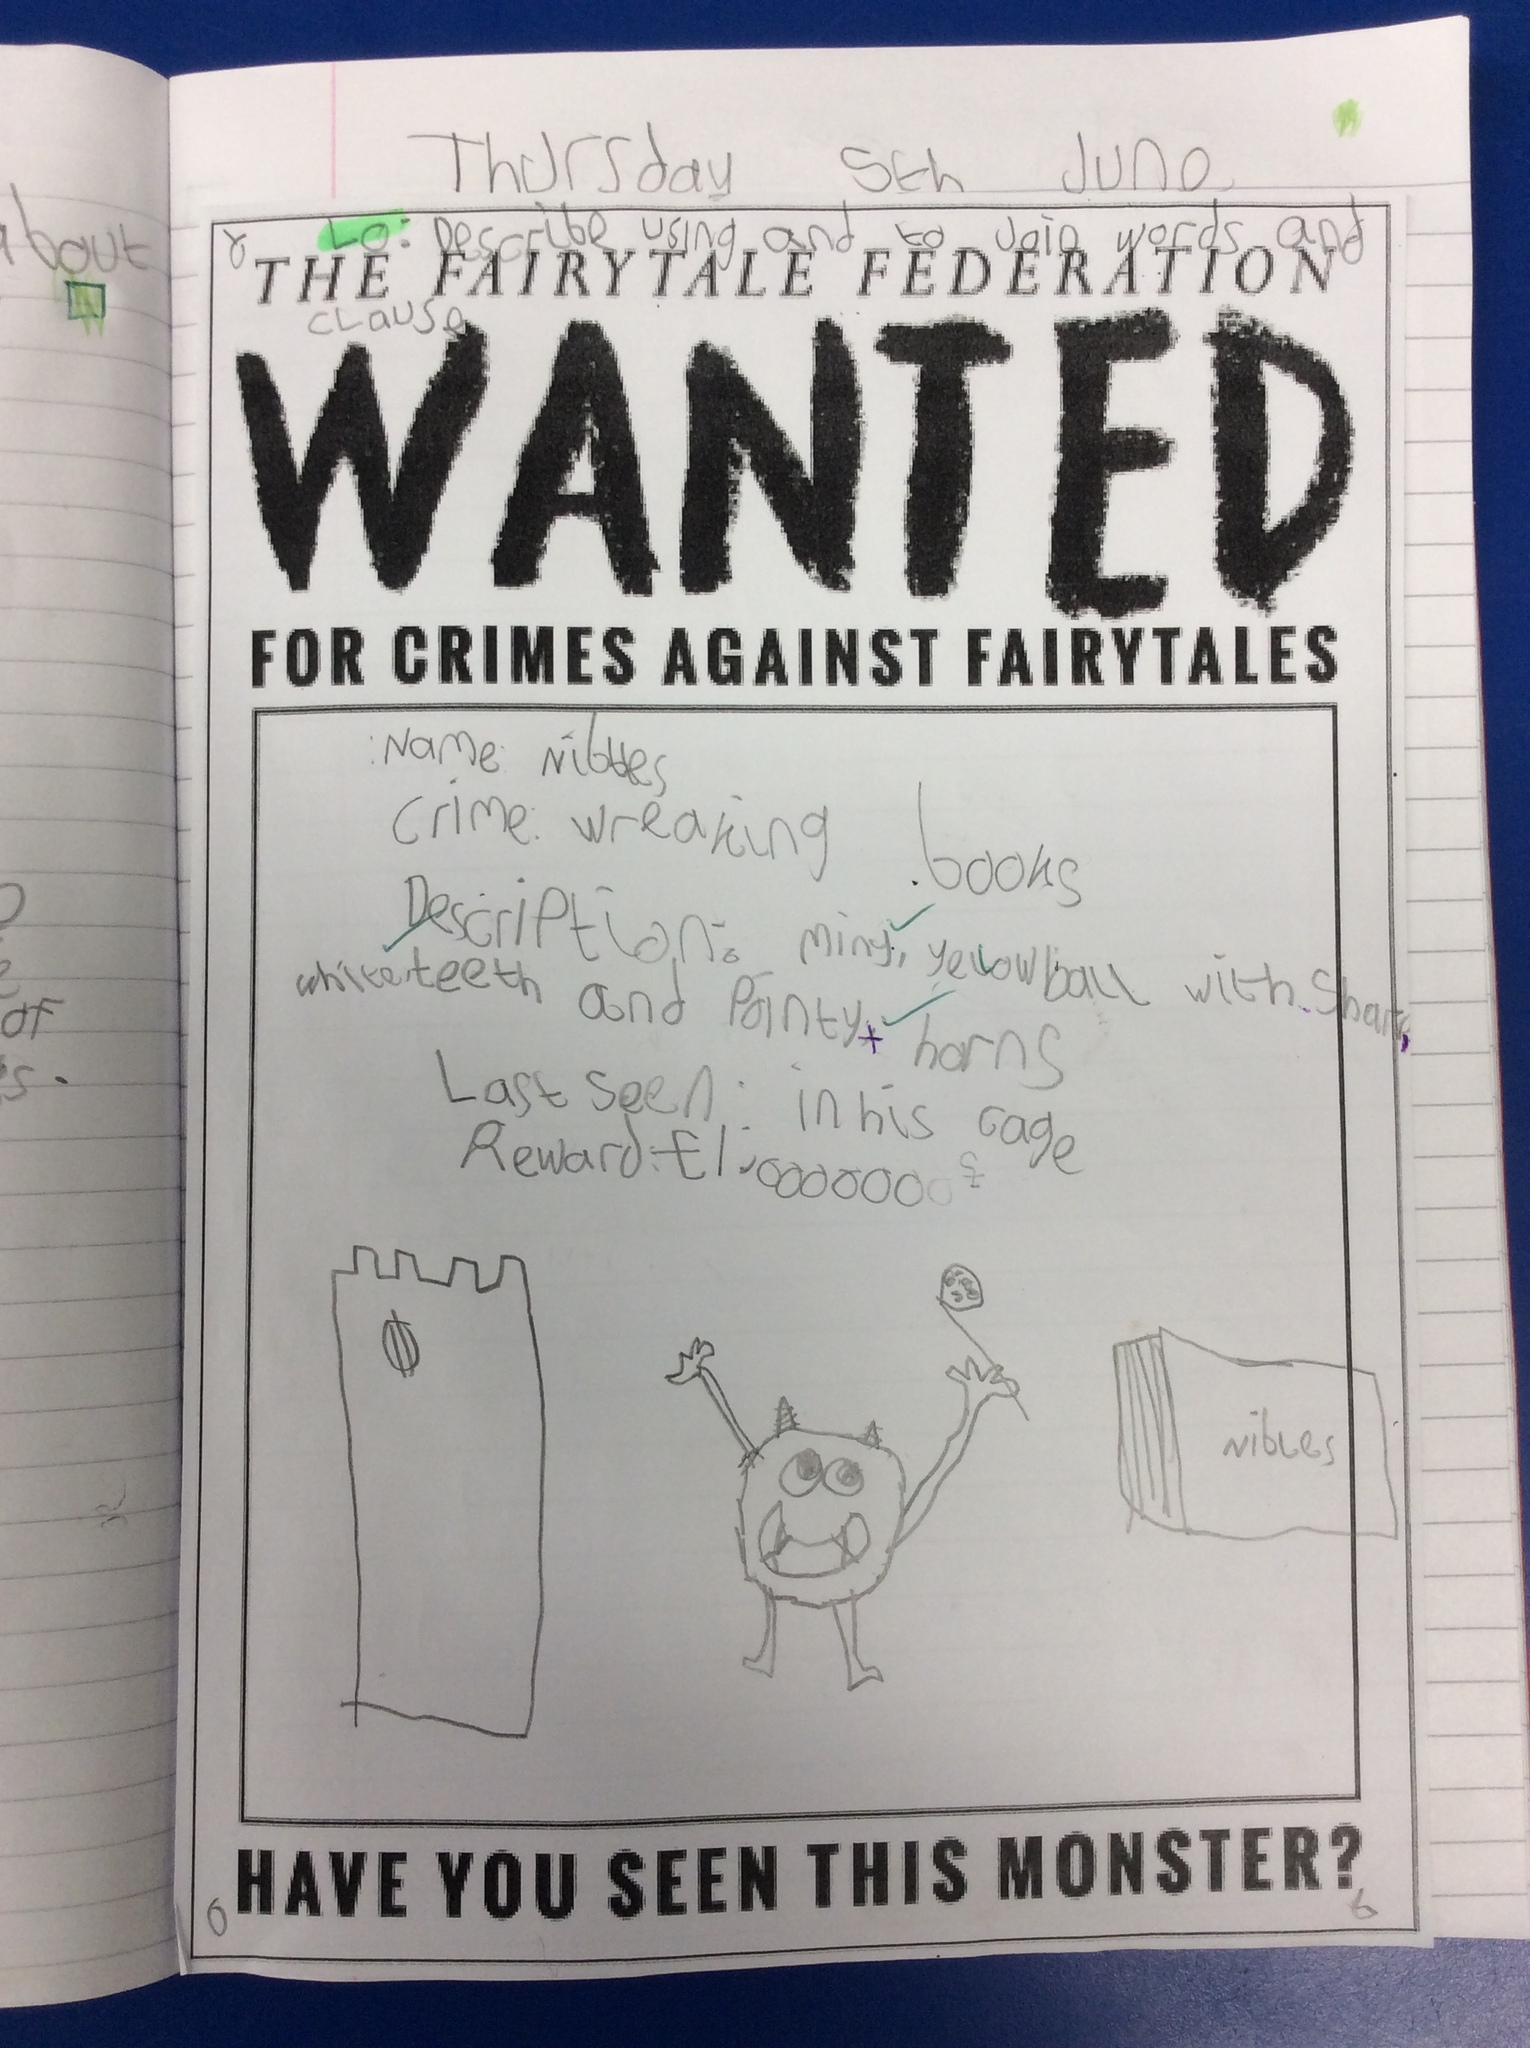 about
of
s.
Thursday 5th June
LO: Describe using and to join words and
THE FAIRYTALE FEDERATION
clause
WANTED
FOR CRIMES AGAINST FAIRYTALES
Name: Nibbles
Crime: wreaking books
Description: miny, yellow ball with sharp,
white teeth and pointy, horns
Last seen: in his cage
Reward: £1,0000000 £
Nibles
HAVE YOU SEEN THIS MONSTER?